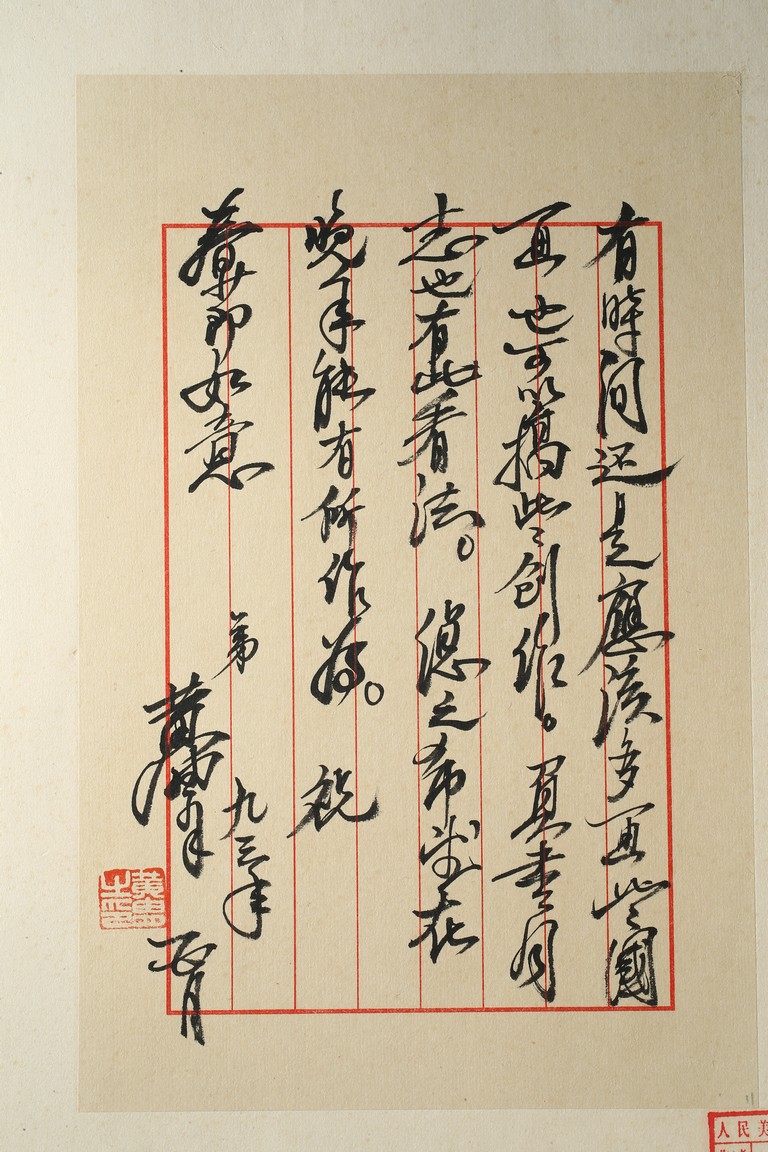 有時间还是應该多画些國
画也可以搞些创作。買書同
志也有此看法。總之希望在
晚年能有所作為。祝
春節如意
弟
黄胄
九三年
正月
黄胄之印
人民美